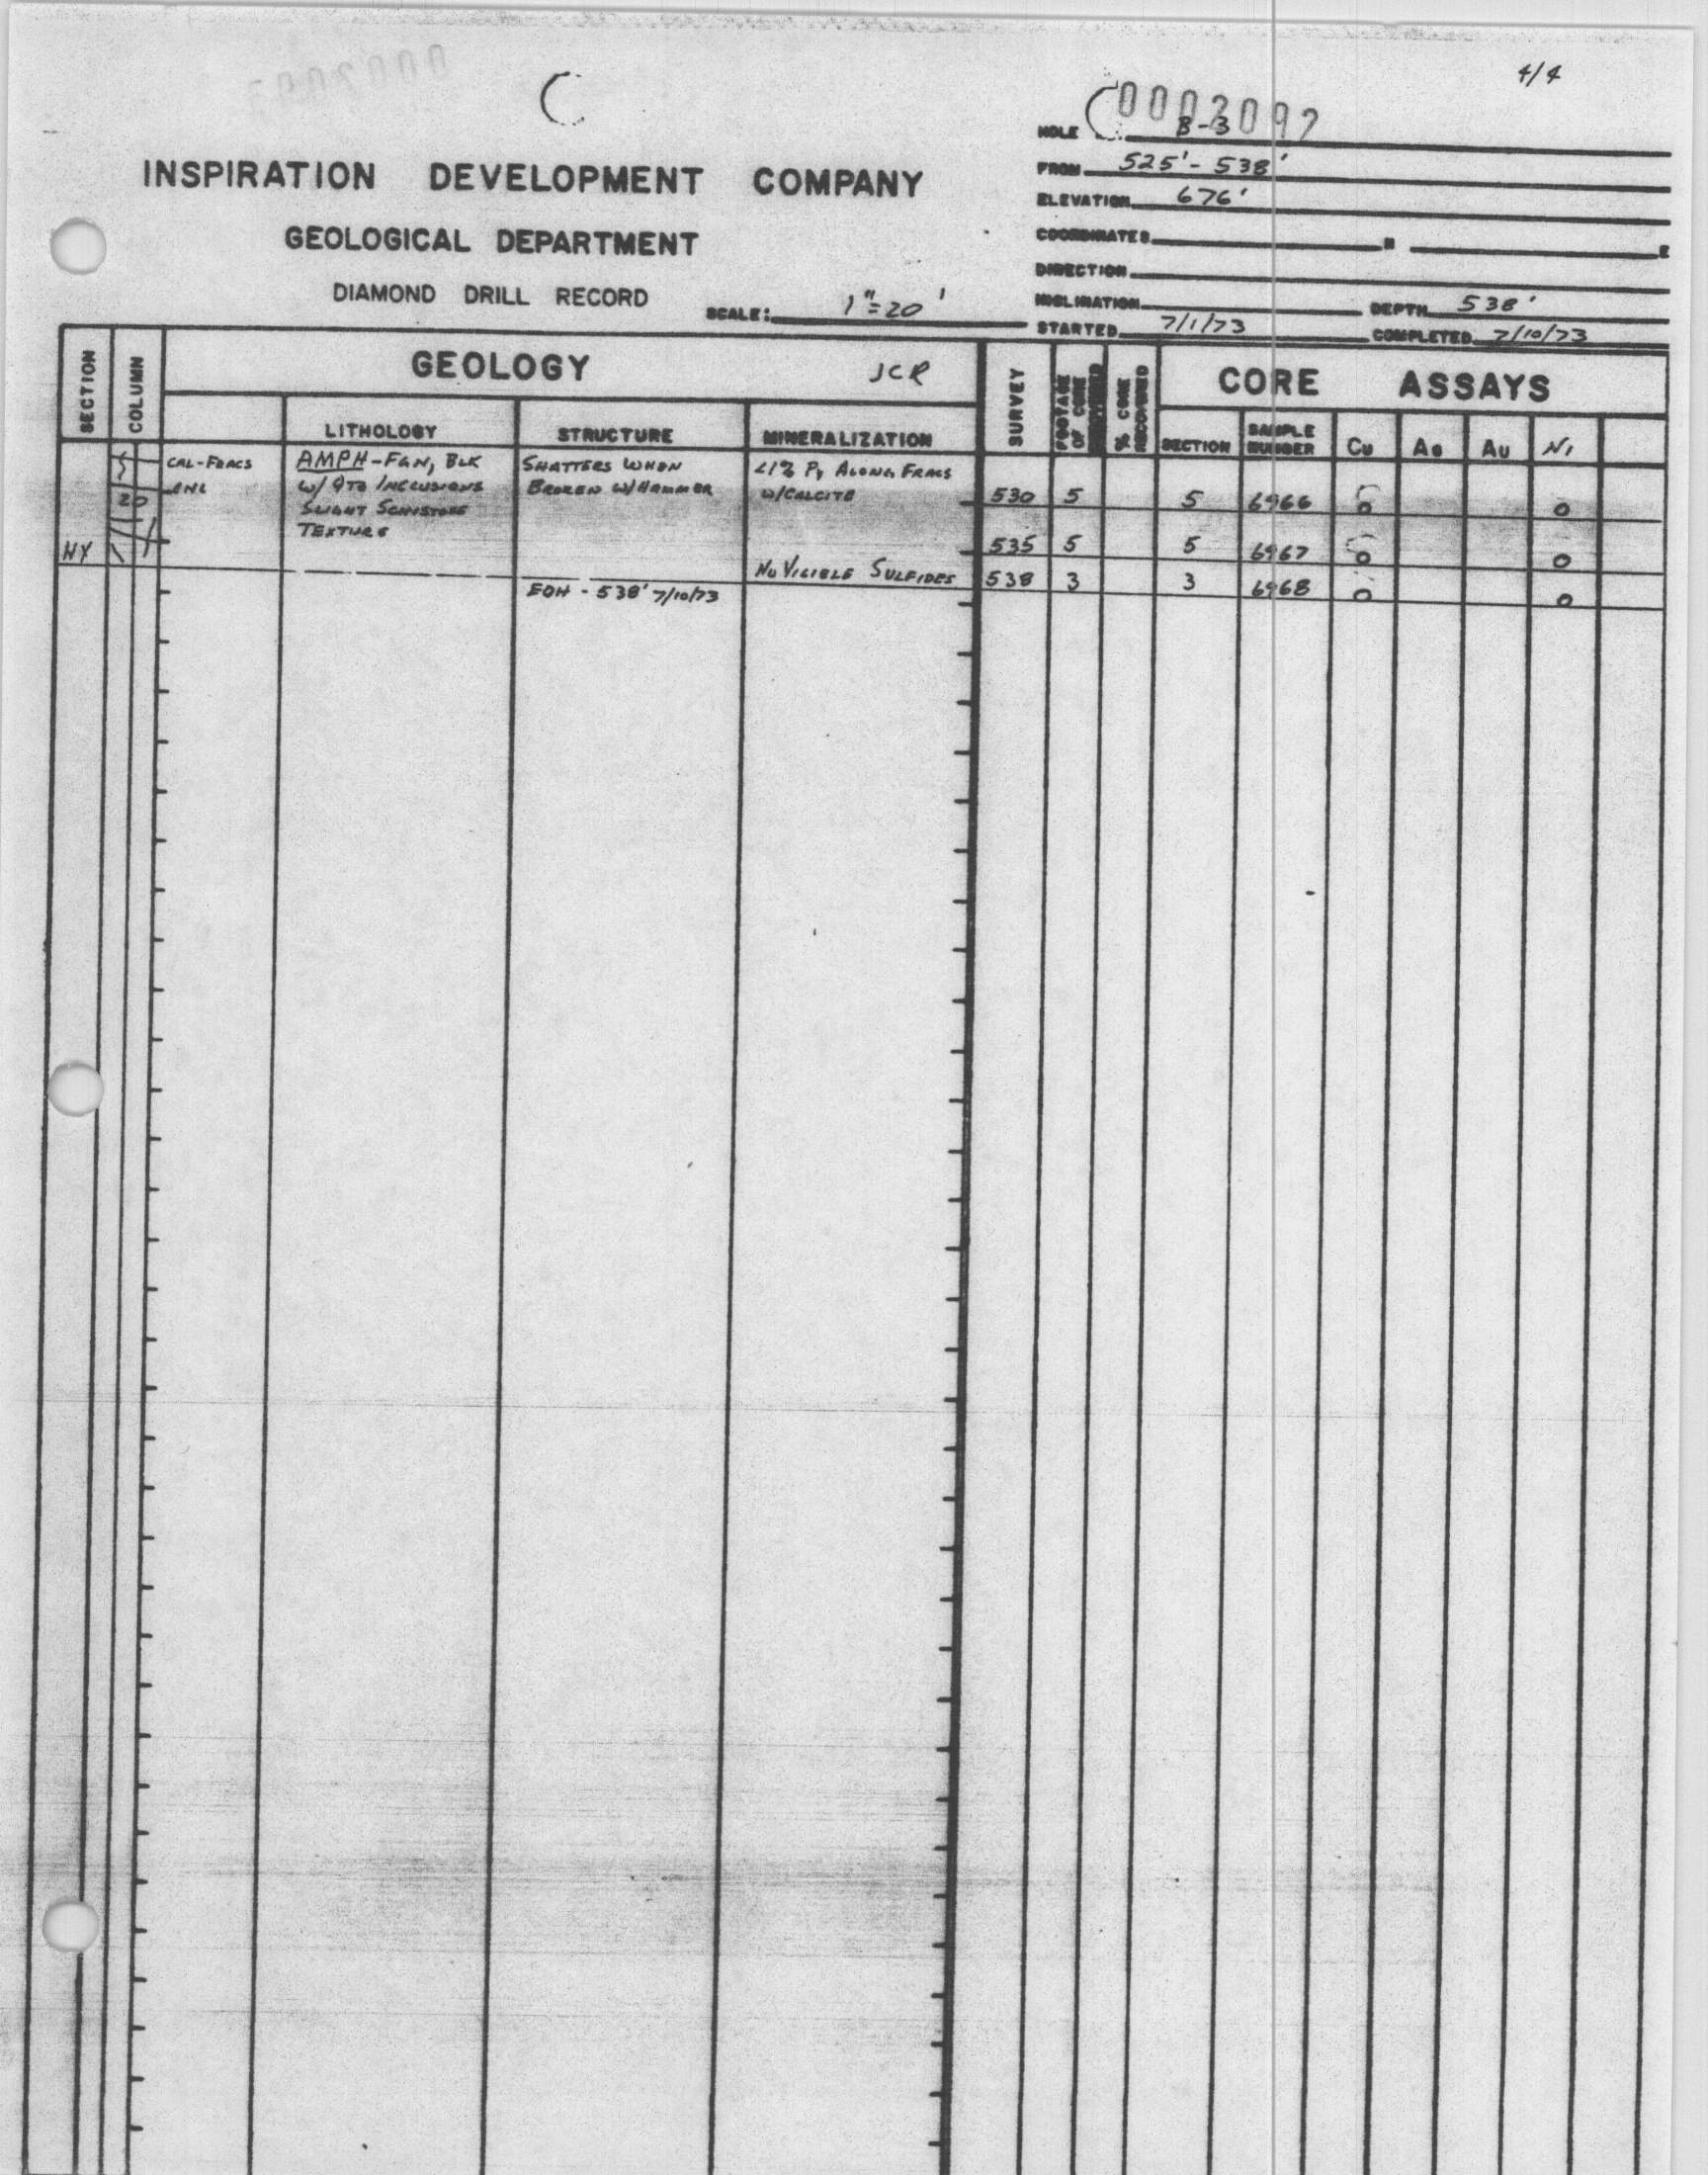 4/4
0002092
HOLE B-3
INSPIRATION DEVELOPMENT COMPANY
FROM 525'- 538'
ELEVATION 676'
GEOLOGICAL DEPARTMENT
COORDINATES N E
DIRECTION
DIAMOND DRILL RECORD
SCALE: 1"=20'
INCLINATION DEPTH 538'
STARTED 7/1/73 COMPLETED 7/10/73
SECTION COLUMN GEOLOGY JCR SURVEY FOOTAGE OF CORE % CORE RECOVERED CORE ASSAYS
LITHOLOGY STRUCTURE MINERALIZATION SECTION SAMPLE NUMBER Cu Ag Au Ni
CAL-FRACS AMPH-FGN, BLK SHATTERS WHEN <1% Py ALONG FRACS
W/ QTZ INCLUSIONS BROKEN W/HAMMER W/CALCITE 530 5 5 6966 0 0
20 SLIGHT SCHISTOSE
TEXTURE
NY 535 5 5 6967 0 0
NO VISIBLE SULFIDES 538 3 3 6968 0 0
EOH - 538' 7/10/73